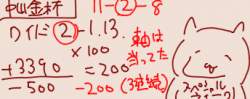 中山金杯 11-②-8
ワイド②-1.13.
×100
+3390 =200
-500 -200 (3連続)
軸は
当ってた
(スペシャル